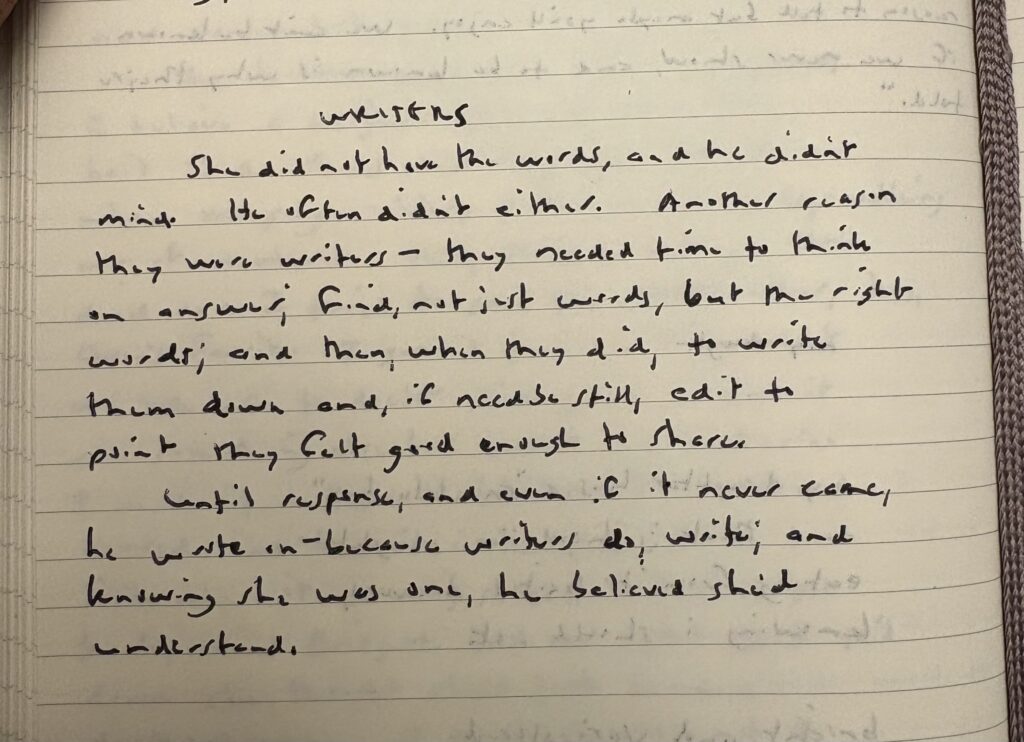 WRITERS
She did not have the words, and he didn't
mind. He often didn't either. Another reason
they were writers – they needed time to think
on answer; find, not just words, but the right
words; and then, when they did, to write
them down and, if need be still, edit to
point they felt good enough to share.
Until response, and even if it never came,
he wrote on – because writers do, write; and
knowing she was one, he believed she'd
understand.